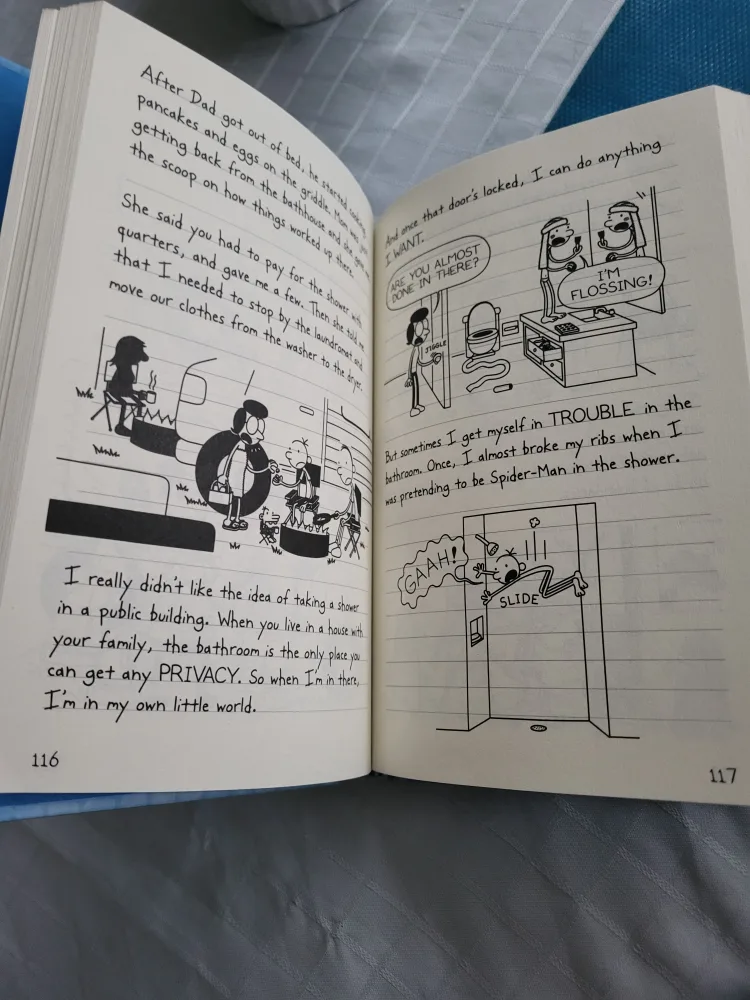 After Dad got out of bed, he started cooking
pancakes and eggs on the griddle. Mom was just
getting back from the bathhouse and she gave us
the scoop on how things worked up there.
She said you had to pay for the shower with
quarters, and gave me a few. Then she told me
that I needed to stop by the laundromat and
move our clothes from the washer to the dryer.
I really didn't like the idea of taking a shower
in a public building. When you live in a house with
your family, the bathroom is the only place you
can get any PRIVACY. So when I'm in there,
I'm in my own little world.
116
And once that door's locked, I can do anything
I WANT.
ARE YOU ALMOST
DONE IN THERE?
I'M
FLOSSING!
JIGGLE
But sometimes I get myself in TROUBLE in the
bathroom. Once, I almost broke my ribs when I
was pretending to be Spider-Man in the shower.
GAAH!
SLIDE
117